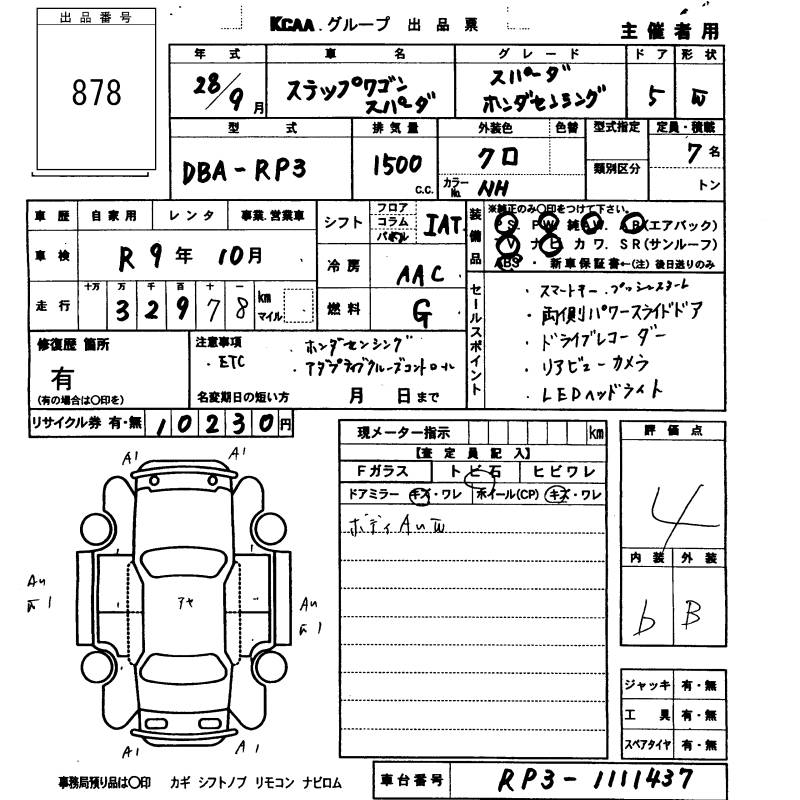 出品番号
878
KCAA.グループ 出品票
主催者用
年式 車名 グレード ドア 形状
28/9月 ステップワゴン スパーダ スパーダ ホンダセンシング 5 W
型式 排気量 外装色 色替 型式指定 定員・積載
DBA-RP3 1500 C.C. クロ 類別区分 7名
カラーNo. NH トン
車歴 自家用 レンタ 事業.営業車 シフト フロア コラム パネル IAT
装備品 ※純正のみ〇印をつけて下さい。
PS. PW. 純AW. AB(エアバック)
TV ナビ カワ. SR(サンルーフ)
ABS・新車保証書←(注)後日送りのみ
車検 R9年10月 冷房 AAC
走行 十万 万 千 百 十 一 32978 km マイル 燃料 G
セールスポイント
・スマートキー・プッシュスタート
・両側パワースライドドア
・ドライブレコーダー
・リアビューカメラ
・LEDヘッドライト
修復歴 箇所
有
(有の場合は〇印を)
注意事項 ・ホンダセンシング
・ETC ・アダプティブクルーズコントロール
名変期日の短い方 月 日まで
リサイクル券 有・無 10230円
現メーター指示 km
【査定員記入】
Fガラス トビ石 ヒビワレ
ドアミラー キズ・ワレ ホイール(CP) キズ・ワレ
ボディAuW
評価点
4
内装 外装
b B
A1 A1
Au
W1
アヤ
Au
W1
A1 A1
ジャッキ 有・無
工具 有・無
スペアタイヤ 有・無
事務局預り品は〇印 カギ シフトノブ リモコン ナビロム
車台番号 RP3-1111437